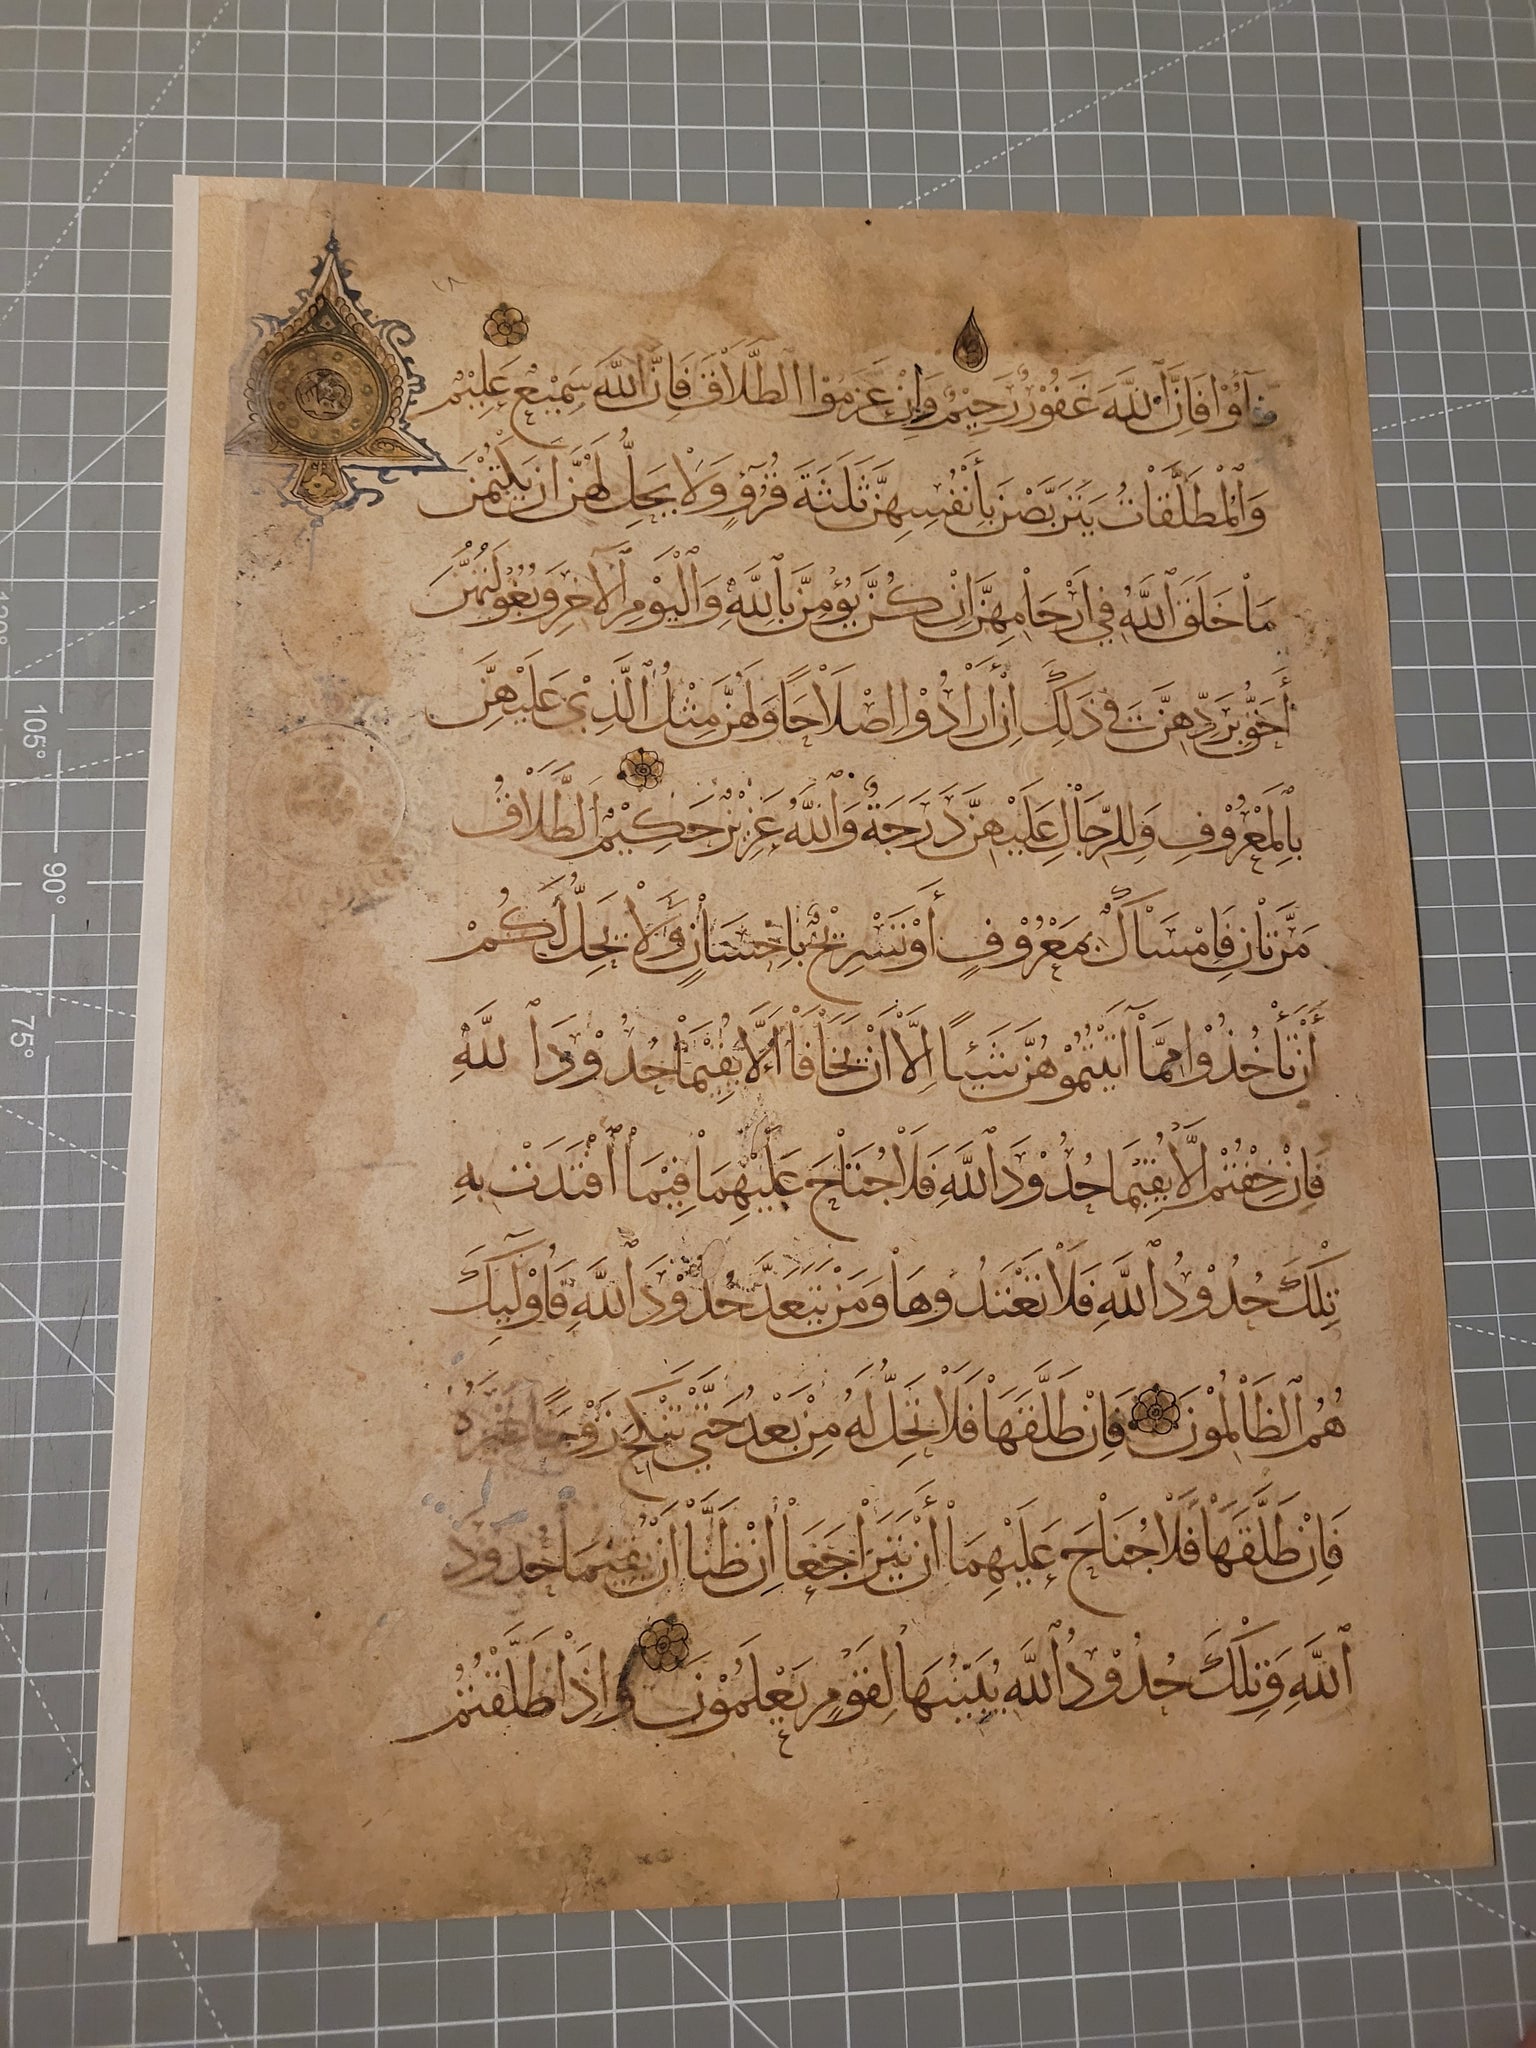 ١٨
فَآؤُوْا فَاِنَّ اللّٰهَ غَفُوْرٌ رَحِيْمٌ وَاِنْ عَزَمُوْا الطَّلَاقَ فَاِنَّ اللّٰهَ سَمِيْعٌ عَلِيْمٌ
وَالْمُطَلَّقَاتُ يَتَرَبَّصْنَ بِأَنْفُسِهِنَّ ثَلٰثَةَ قُرُوْءٍ وَلَا يَحِلُّ لَهُنَّ اَنْ يَكْتُمْنَ
مَا خَلَقَ اللّٰهُ فِي اَرْحَامِهِنَّ اِنْ كُنَّ يُؤْمِنَّ بِاللّٰهِ وَالْيَوْمِ الْآخِرِ وَبُعُوْلَتُهُنَّ
أَحَقُّ بِرَدِّهِنَّ فِي ذٰلِكَ اِنْ اَرَادُوْا اِصْلَاحًا وَلَهُنَّ مِثْلُ الَّذِيْ عَلَيْهِنَّ
بِالْمَعْرُوْفِ وَلِلرِّجَالِ عَلَيْهِنَّ دَرَجَةٌ وَاللّٰهُ عَزِيْزٌ حَكِيْمٌ الطَّلَاقُ
مَرَّتَانِ فَاِمْسَاكٌ بِمَعْرُوْفٍ أَوْ تَسْرِيْحٌ بِاِحْسَانٍ وَلَا يَحِلُّ لَكُمْ
أَنْ تَأْخُذُوْا مِمَّا آتَيْتُمُوْهُنَّ شَيْئًا اِلَّا اَنْ يَخَافَا اَلَّا يُقِيْمَا حُدُوْدَ اللّٰهِ
فَاِنْ خِفْتُمْ اَلَّا يُقِيْمَا حُدُوْدَ اللّٰهِ فَلَا جُنَاحَ عَلَيْهِمَا فِيْمَا افْتَدَتْ بِهِ
تِلْكَ حُدُوْدُ اللّٰهِ فَلَا تَعْتَدُوهَا وَمَنْ يَتَعَدَّ حُدُوْدَ اللّٰهِ فَاُوْلٰئِكَ
هُمُ الظَّالِمُوْنَ فَاِنْ طَلَّقَهَا فَلَا تَحِلُّ لَهُ مِنْ بَعْدُ حَتّٰى تَنْكِحَ زَوْجًا غَيْرَهُ
فَاِنْ طَلَّقَهَا فَلَا جُنَاحَ عَلَيْهِمَا أَنْ يَتَرَاجَعَا اِنْ ظَنَّا اَنْ يُقِيْمَا حُدُوْدَ
اللّٰهِ وَتِلْكَ حُدُوْدُ اللّٰهِ يُبَيِّنُهَا لِقَوْمٍ يَعْلَمُوْنَ وَاِذَا طَلَّقْتُمُ
105°
90°
75°